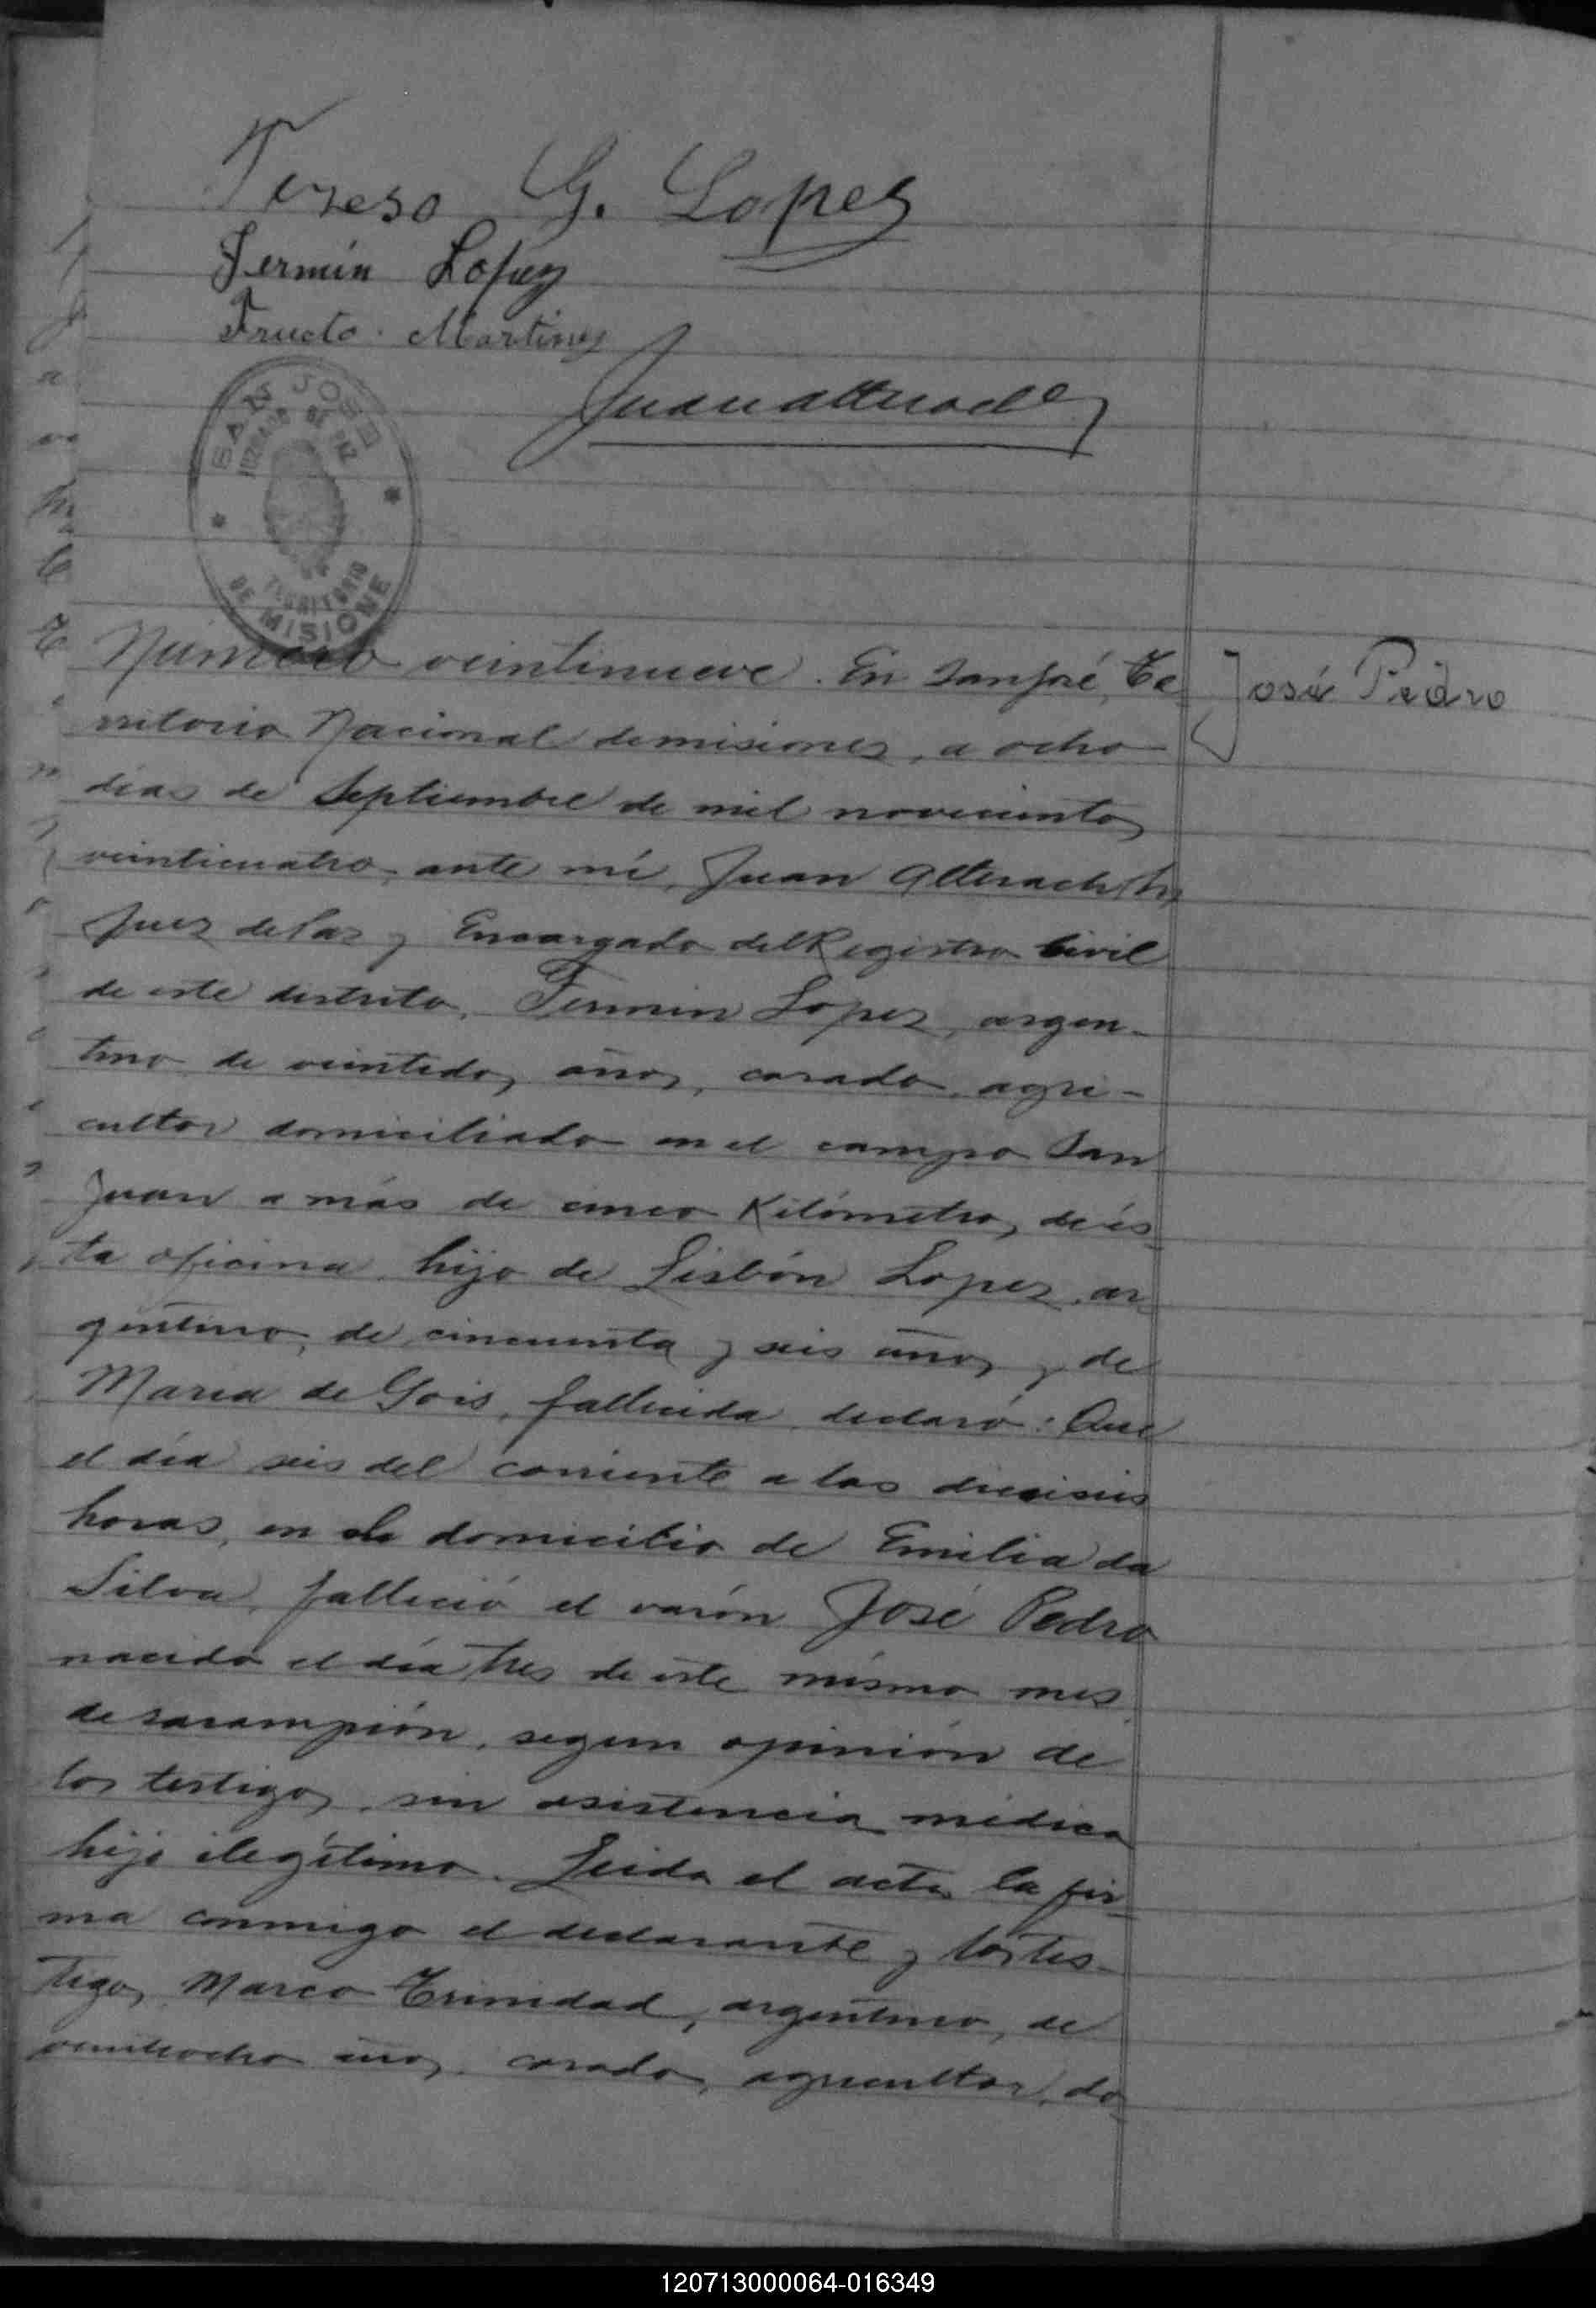 Tereso G. Lopez
Fermín Lopez
Fructo. Martinez
SAN JOSE
JUZGADO DE PAZ
TERRITORIO
DE MISIONE
Número veintinueve. En San José, Te- José Pedro
rritorio Nacional de misiones, a ocho
días de Septiembre de mil novecientos
veinticuatro, ante mí, Juan
Juez de Paz y Encargado del Registro Civil
de este distrito, Fermin Lopez, argen-
tino de veintidos años, casado, agri-
cultor domiciliado en el campo San
Juan a más de cinco Kilómetros de és-
ta oficina, hijo de Lisbón Lopez, ar-
gentino, de cincuenta y seis años y de
María de Gois, fallecida, declaró: Que
el día seis del corriente a las dieciseis
horas, en el domicilio de Emilia da
Silva, falleció el varón José Pedro
nacido el día tres de este mismo mes,
de sarampión, segun opinión de
los testigos, sin asistencia médica
hijo ilegítimo. Leida el acta la fir-
ma conmigo el declarante y los tes-
tigos, Marco Trinidad, argentino, de
veintiocho años, casado, agricultor, do-
120713000064-016349